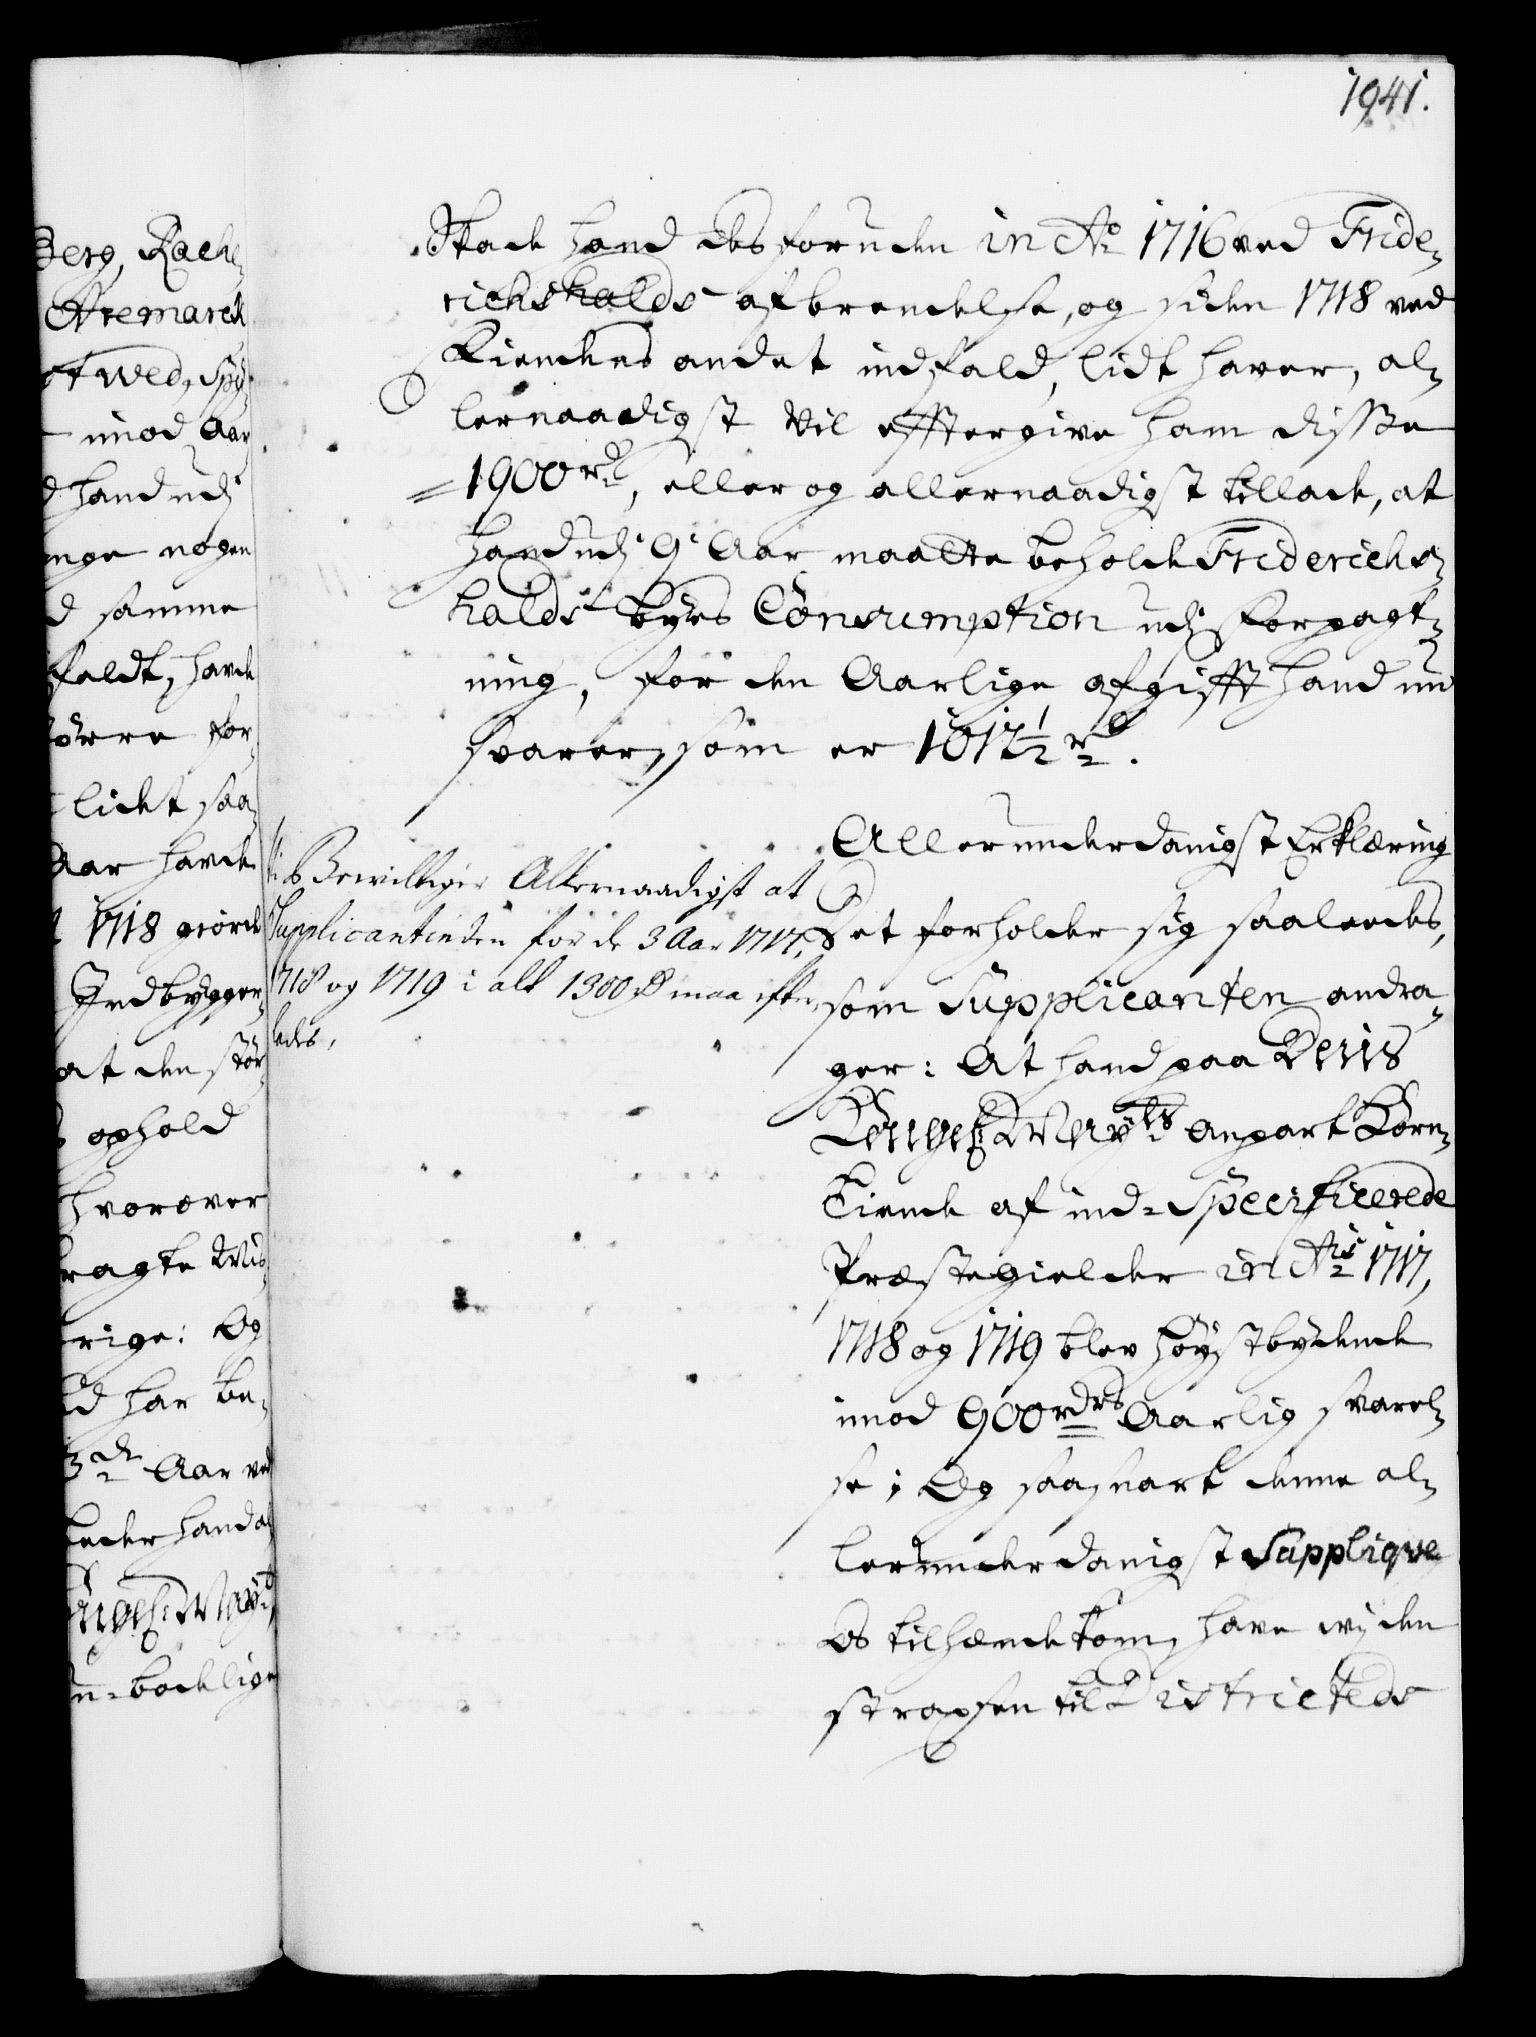 1941.
Berg, Racke⸗
Aremarck
imod Aar
d hand udj
nge nogen
d samme
feldt, hafde
örre for⸗
lidt saa⸗
Aar hafde
1718 giorde
Indbygger⸗
at den stör⸗
ophold
hvorover
ragte Mis⸗
rige: Og
d har be⸗
3de Aar ved
eder hand al
n⸗bodelige
Skade hand des foruden in Ao 1716 ved Fride⸗
richshalds afbrendelse, og siden 1718 ved
Fiendens andet indfald, lidt haver, al⸗
lernaadigst vil efftergive ham disse
1900 rd, eller og allernaadigst tillade, at
hand udj 9 Aar maatte beholde Friderichs⸗
halds byes Consumption udj forpagt⸗
ning, for den Aarlige afgifft hand nu
svarer, som er 1017½ rd.
Bewilliges Allernaadigst at
Supplicantinden for de 3 Aar 1717,
1718 og 1719 i alt 1300 rd maa efter⸗
lades,
Allerunderdanigst Erklæring
Det forholder sig saaledes,
som Supplicanten andra⸗
ger: At hand paa Deris
Kongel: Mayts anpart Korn⸗
Tiende af ind⸗Specificerede
Præstegielder in Ais 1717,
1718 og 1719 blev höystbydende
imod 900 rdrs Aarlig svarel⸗
se; Og saasnart denne al⸗
lerunderdanigst Supplique
Os tilhænde kom, have wj den
strax sendt til Districteds